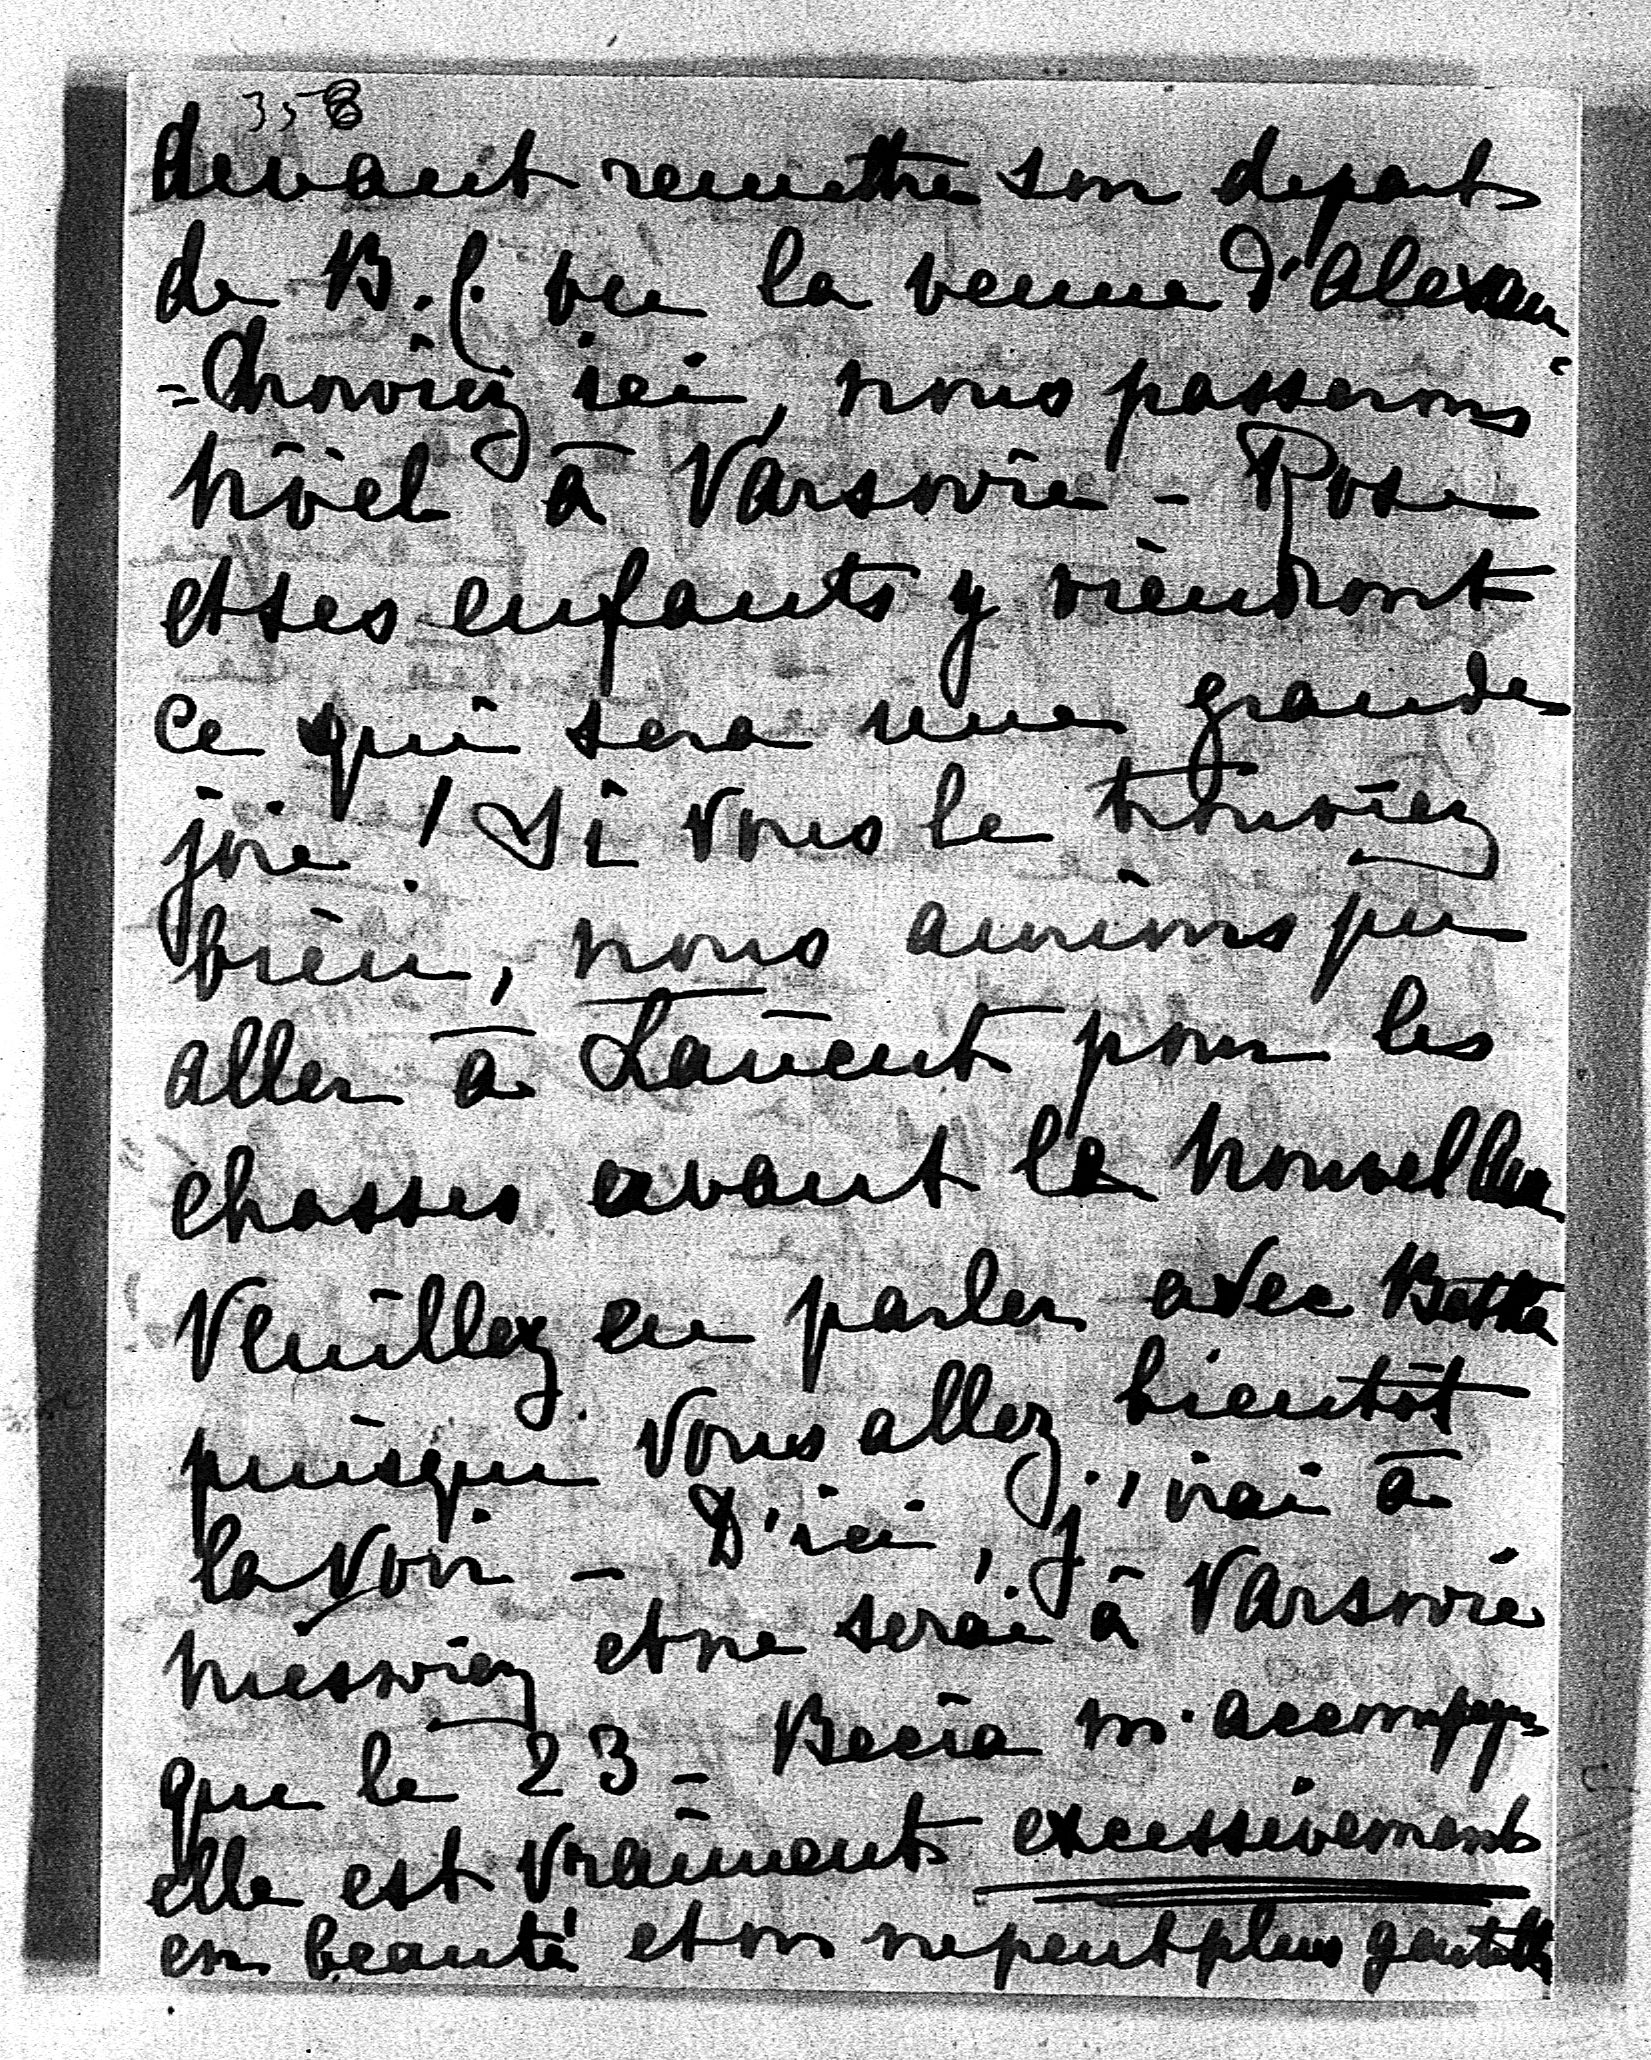 358
devant remettre son depart
de B. ( vu la venue d'Alexan
=drowicz ici, nous passerons
Nöel à Varsovie - Rose
et ses enfants y viendront
ce qui sera une grande
joie ! Si vous le trouviez
bien, nous aurions pu
aller à Lancut pour les
chasses avant le nouvel
Veuillez en parler avec
puisque vous allez bientôt
la voir - D'ici, j'irai à
Nieswiez et ne serai à Varsovie
que le 23 - m'accompagne
elle est vraiment excessivement
en beauté et on ne peut plus gentille